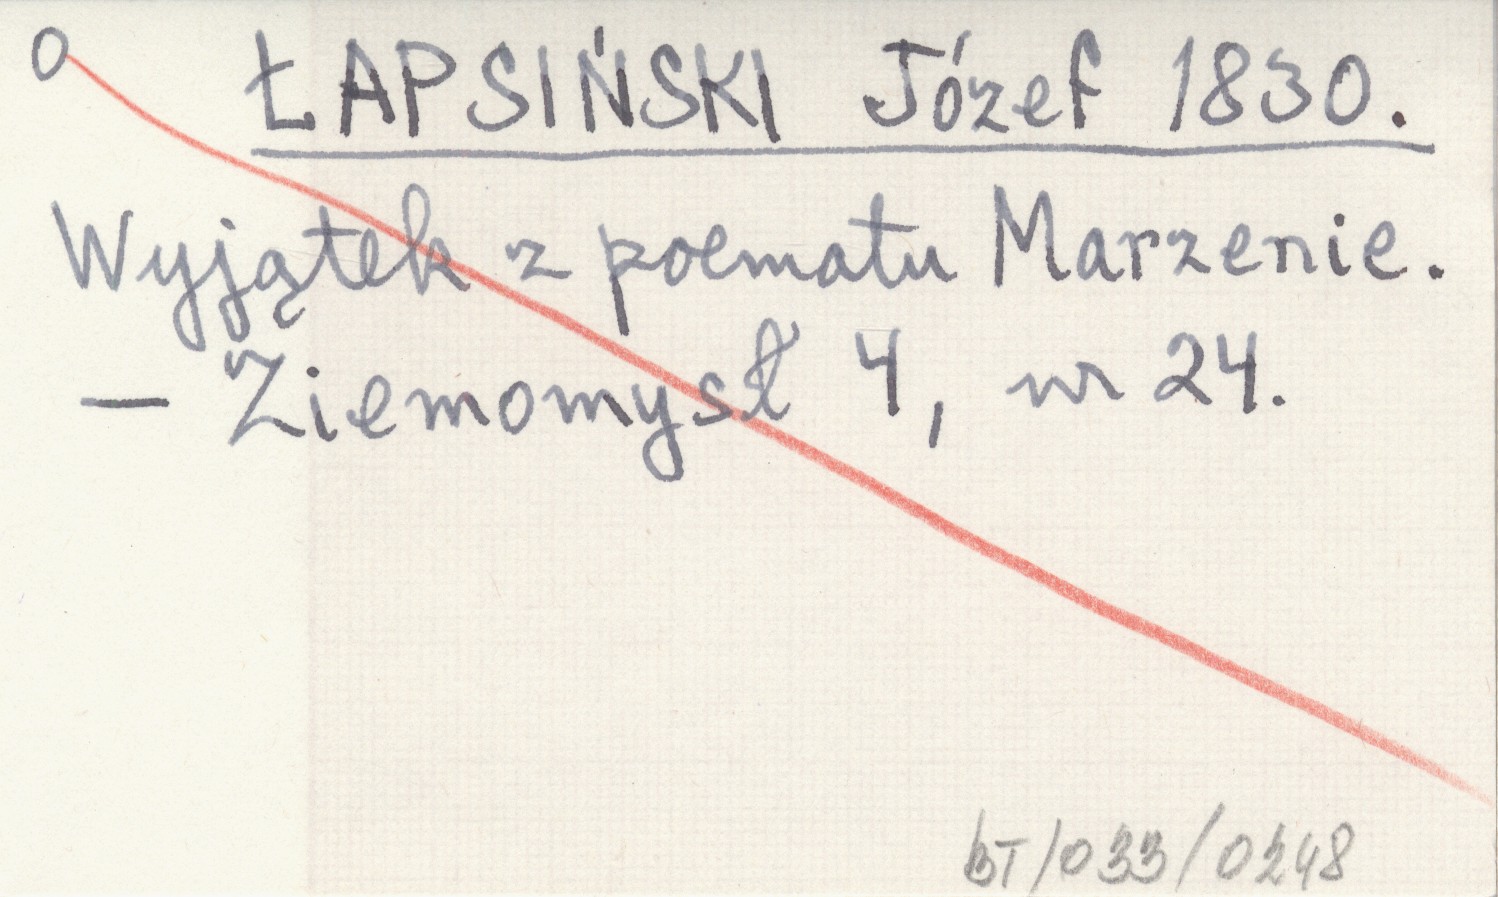 O ŁAPSIŃSKI Józef 1830.
Wyjątek z poematu Marzenie.
— Ziemomysł 4, nr 24.
bT/033/0248